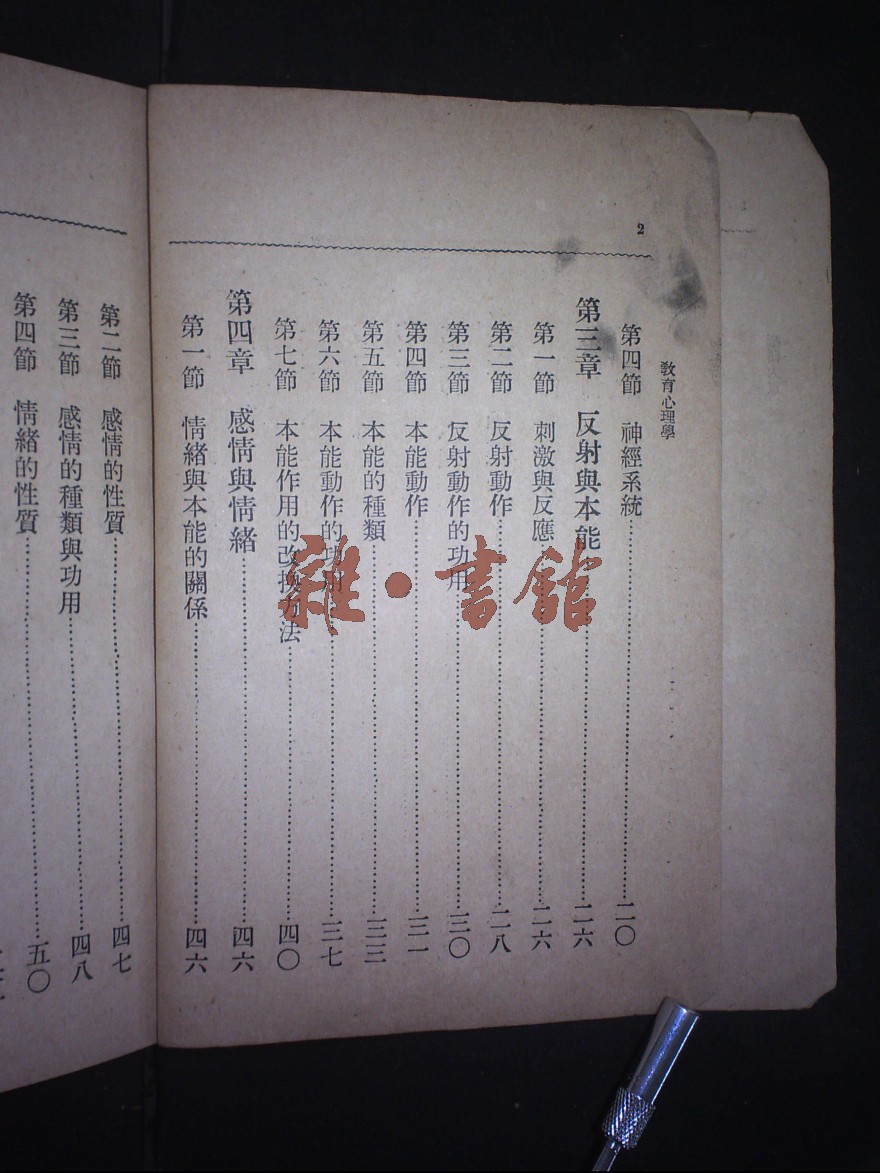 2
教育心理學
第四節　神經系統……………二〇
第三章　反射與本能……………二六
第一節　刺激與反應……………二六
第二節　反射動作……………二八
第三節　反射動作的功用……………三〇
第四節　本能動作……………三一
第五節　本能的種類……………三三
第六節　本能動作的功用……………三七
第七節　本能作用的改換方法……………四〇
第四章　感情與情緒……………四六
第一節　情緒與本能的關係……………四六
第二節　感情的性質……………四七
第三節　感情的種類與功用……………四八
第四節　情緒的性質……………五〇
雜·書館